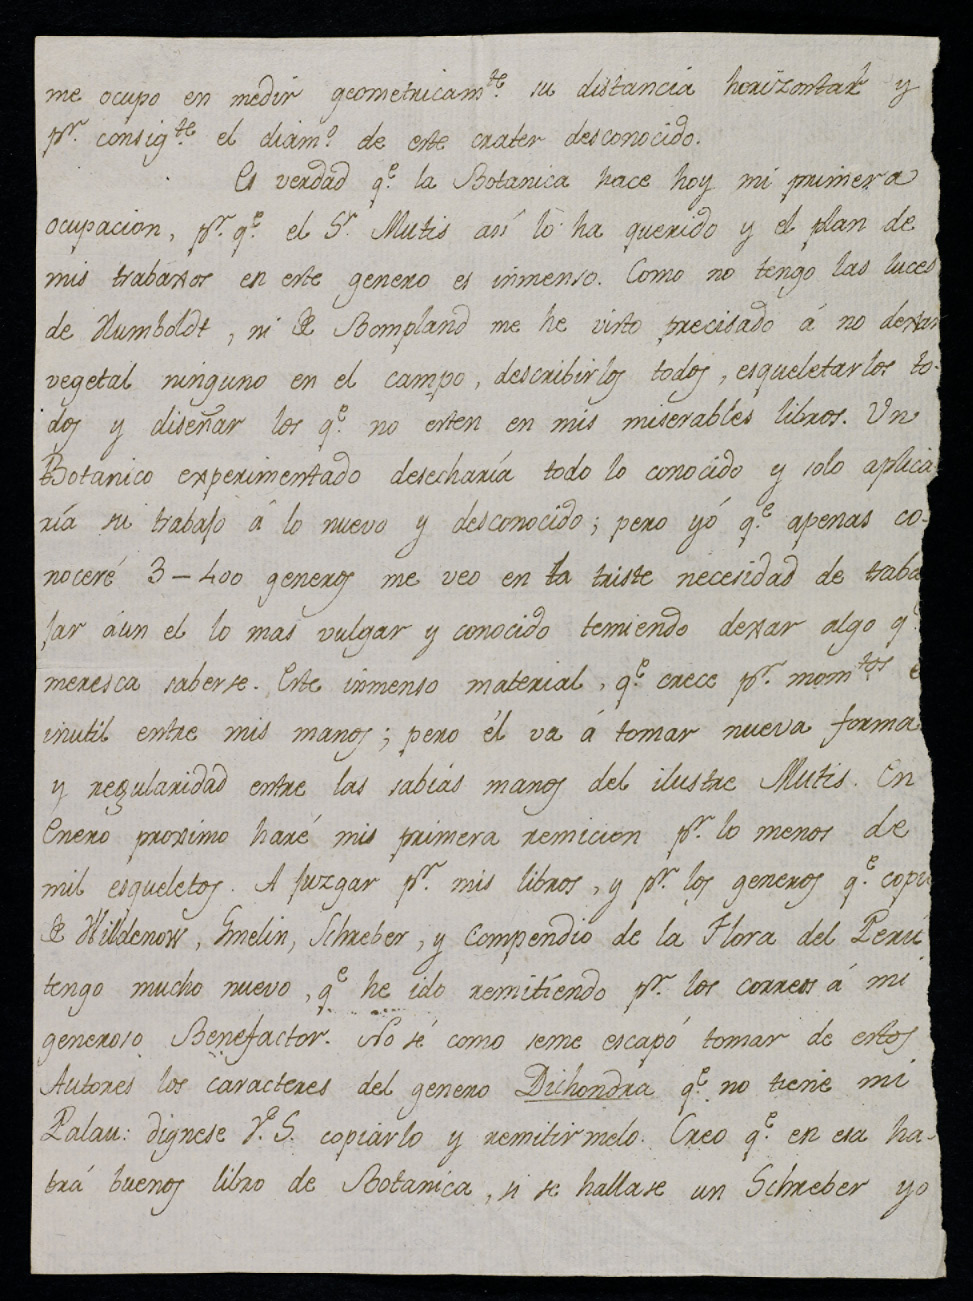 me ocupo en medir geometricam.te su distancia horizontal y
pr. consig.te el diam.o de este crater desconocido.
Es verdad q.e la Botanica hace hoy mi primera
ocupacion, pr. q.e el S.r Mutis asi lo ha querido y el plan de
mis trabaxos en este genero es inmenso. Como no tengo las luces
de Humboldt, ni de Bompland me he visto precisado á no dexar
vegetal ninguno en el campo, describirlos todos, esqueletarlos to-
dos y diseñar los q.e no esten en mis miserables libros. Un
Botanico experimentado desecharía todo lo conocido y solo aplica
ría su trabajo á lo nuevo y desconocido; pero yó q.e apenas co-
noceré 3-400 generos me veo en la triste necesidad de traba
jar áun el lo mas vulgar y conocido temiendo dexar algo q.e
meresca saberse. Este inmenso material, q.e crece pr. mom.tos e
inutil entre mis manos; pero él va á tomar nueva forma
y regularidad entre las sabias manos del ilustre Mutis. En
Enero proximo haré mis primera remicion pr. lo menos de
mil esqueletos. A juzgar pr. mis libros, y pr. los generos q.e copie
de Willdenow, Gmelin, Schreber, y Compendio de la Flora del Perú
tengo mucho nuevo, q.e he ido remitiendo pr. los correos á mi
generoso Benefactor. No sé como seme escapó tomar de estos
Autores los caracteres del genero Dichondra q.e no tiene mi
Palau: dignese V. S. copiarlo y remitirmelo. Creo q.e en esa ha-
brá buenos libro de Botanica, si se hallase un Schreber yo